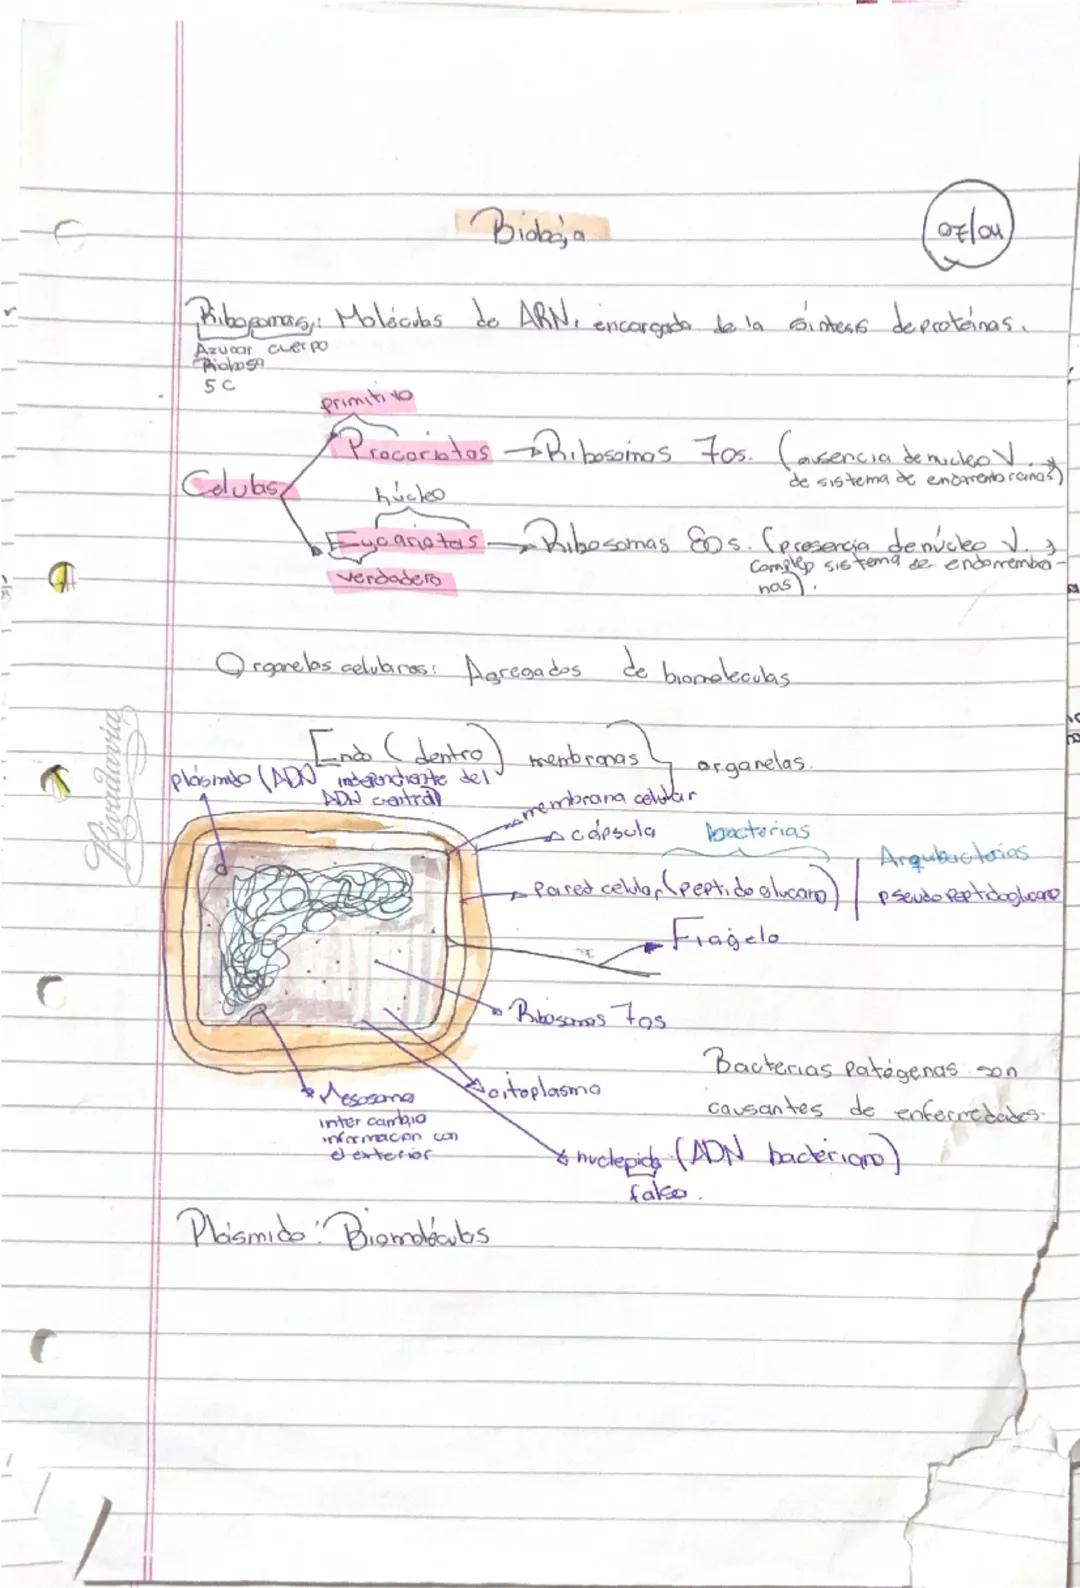 Biología
07/04
Ribosomas: Moléculas de ARN, encargada de la síntesis de proteínas.
Azucar cuerpo
Ribosa
5 C
primitivo
Procariotas → Ribosomas 70s. (ausencia de nucleo V. y
de sistema de endomembranas)
Celulas
núcleo
Eucariotas → Ribosomas 80s. (presencia de núcleo V. y
complejo sistema de endomembra-
nas).
verdadero
Organelos celulares: Agregados de biomoleculas
Endo (dentro) membranas organelas.
plásmido (ADN independiente del
ADN central)
membrana celular
cápsula
bacterias
Arqubacterias
Pared celular (peptidoglucano)
pseudo peptidoglucano
Flagelo
Ribosomas 70s
Mesosoma
inter cambio
información con
el exterior
citoplasma
Bacterias patógenas son
causantes de enfermedades.
nucleoide (ADN bacteriano)
falso.
Plásmido: Biomoléculas
Rivadavia